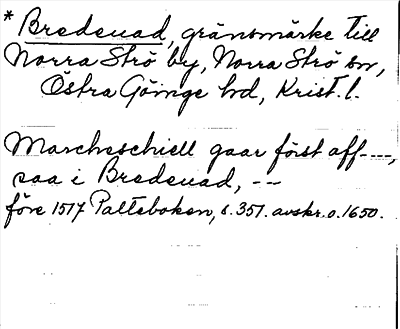 * Bredeuad, gränsmärke till
Norra Strö by, Norra Strö sn,
Östra Göinge hd, Krist. l.
Marcheschiell gaar först aff ---,
saa i Bredeuad, --
före 1517 Palteboken, s. 351. avskr. o. 1650.